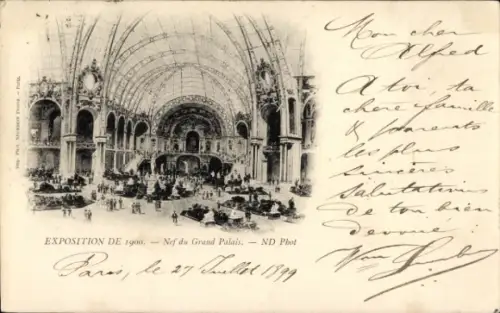 EXPOSITION DE 1900. — Nef du Grand Palais. — ND Phot
Paris, le 27 Juillet 1899
Mon cher
Alfred
A toi, ta
chère famille
& parents
les plus
sincères
salutations
de ton bien
dévoué
Van